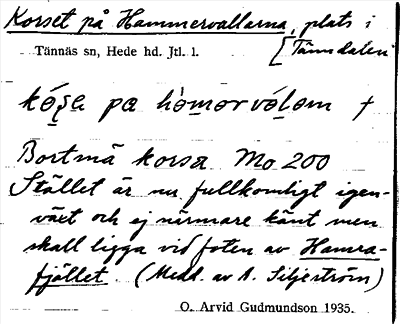 Korset på Hammervallarna, plats i
[Tänndalen
Tännäs sn, Hede hd. Jtl. l.
kó̱ṣa pa hòmərvá̱lom †
Bortmä korsa Mo 200
Stället är nu fullkomligt igen-
växt och ej närmare känt men
skall ligga vid foten av Hamra-
fjället. (Medd. av A. Siljeström)
O. Arvid Gudmundson 1935.